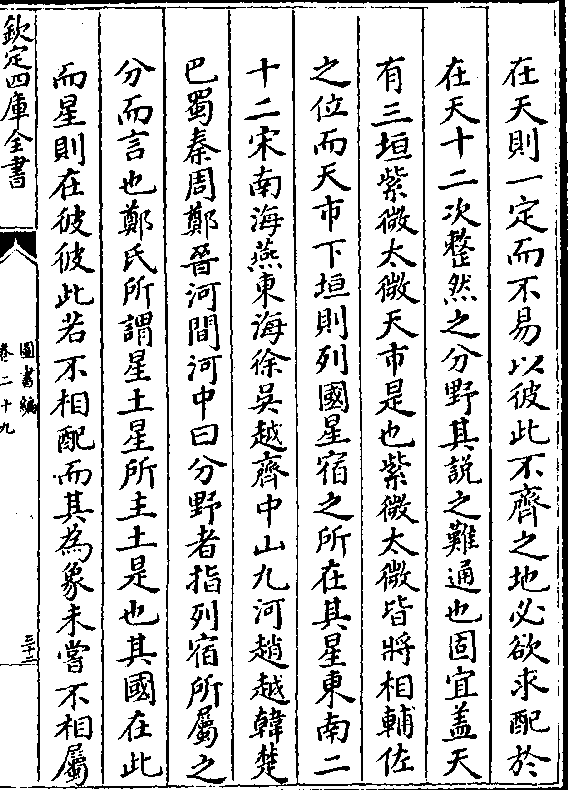 在天則一定而不易以彼此不齊之地必欲求配於
在天十二次整然之分野其説之難通也固宜蓋天
有三垣紫微太微天市是也紫微太微皆將相輔佐
之位而天市下垣則列國星宿之所在其星東南二
十二宋南海燕東海徐吳越齊中山九河趙越韓楚
巴蜀秦周鄭晉河間河中曰分野者指列宿所屬之
分而言也鄭氏所謂星土星所主土是也其國在此
而星則在彼彼此若不相配而其為象未嘗不相屬
欽定四庫全書
圖書編
卷二十九
三十二